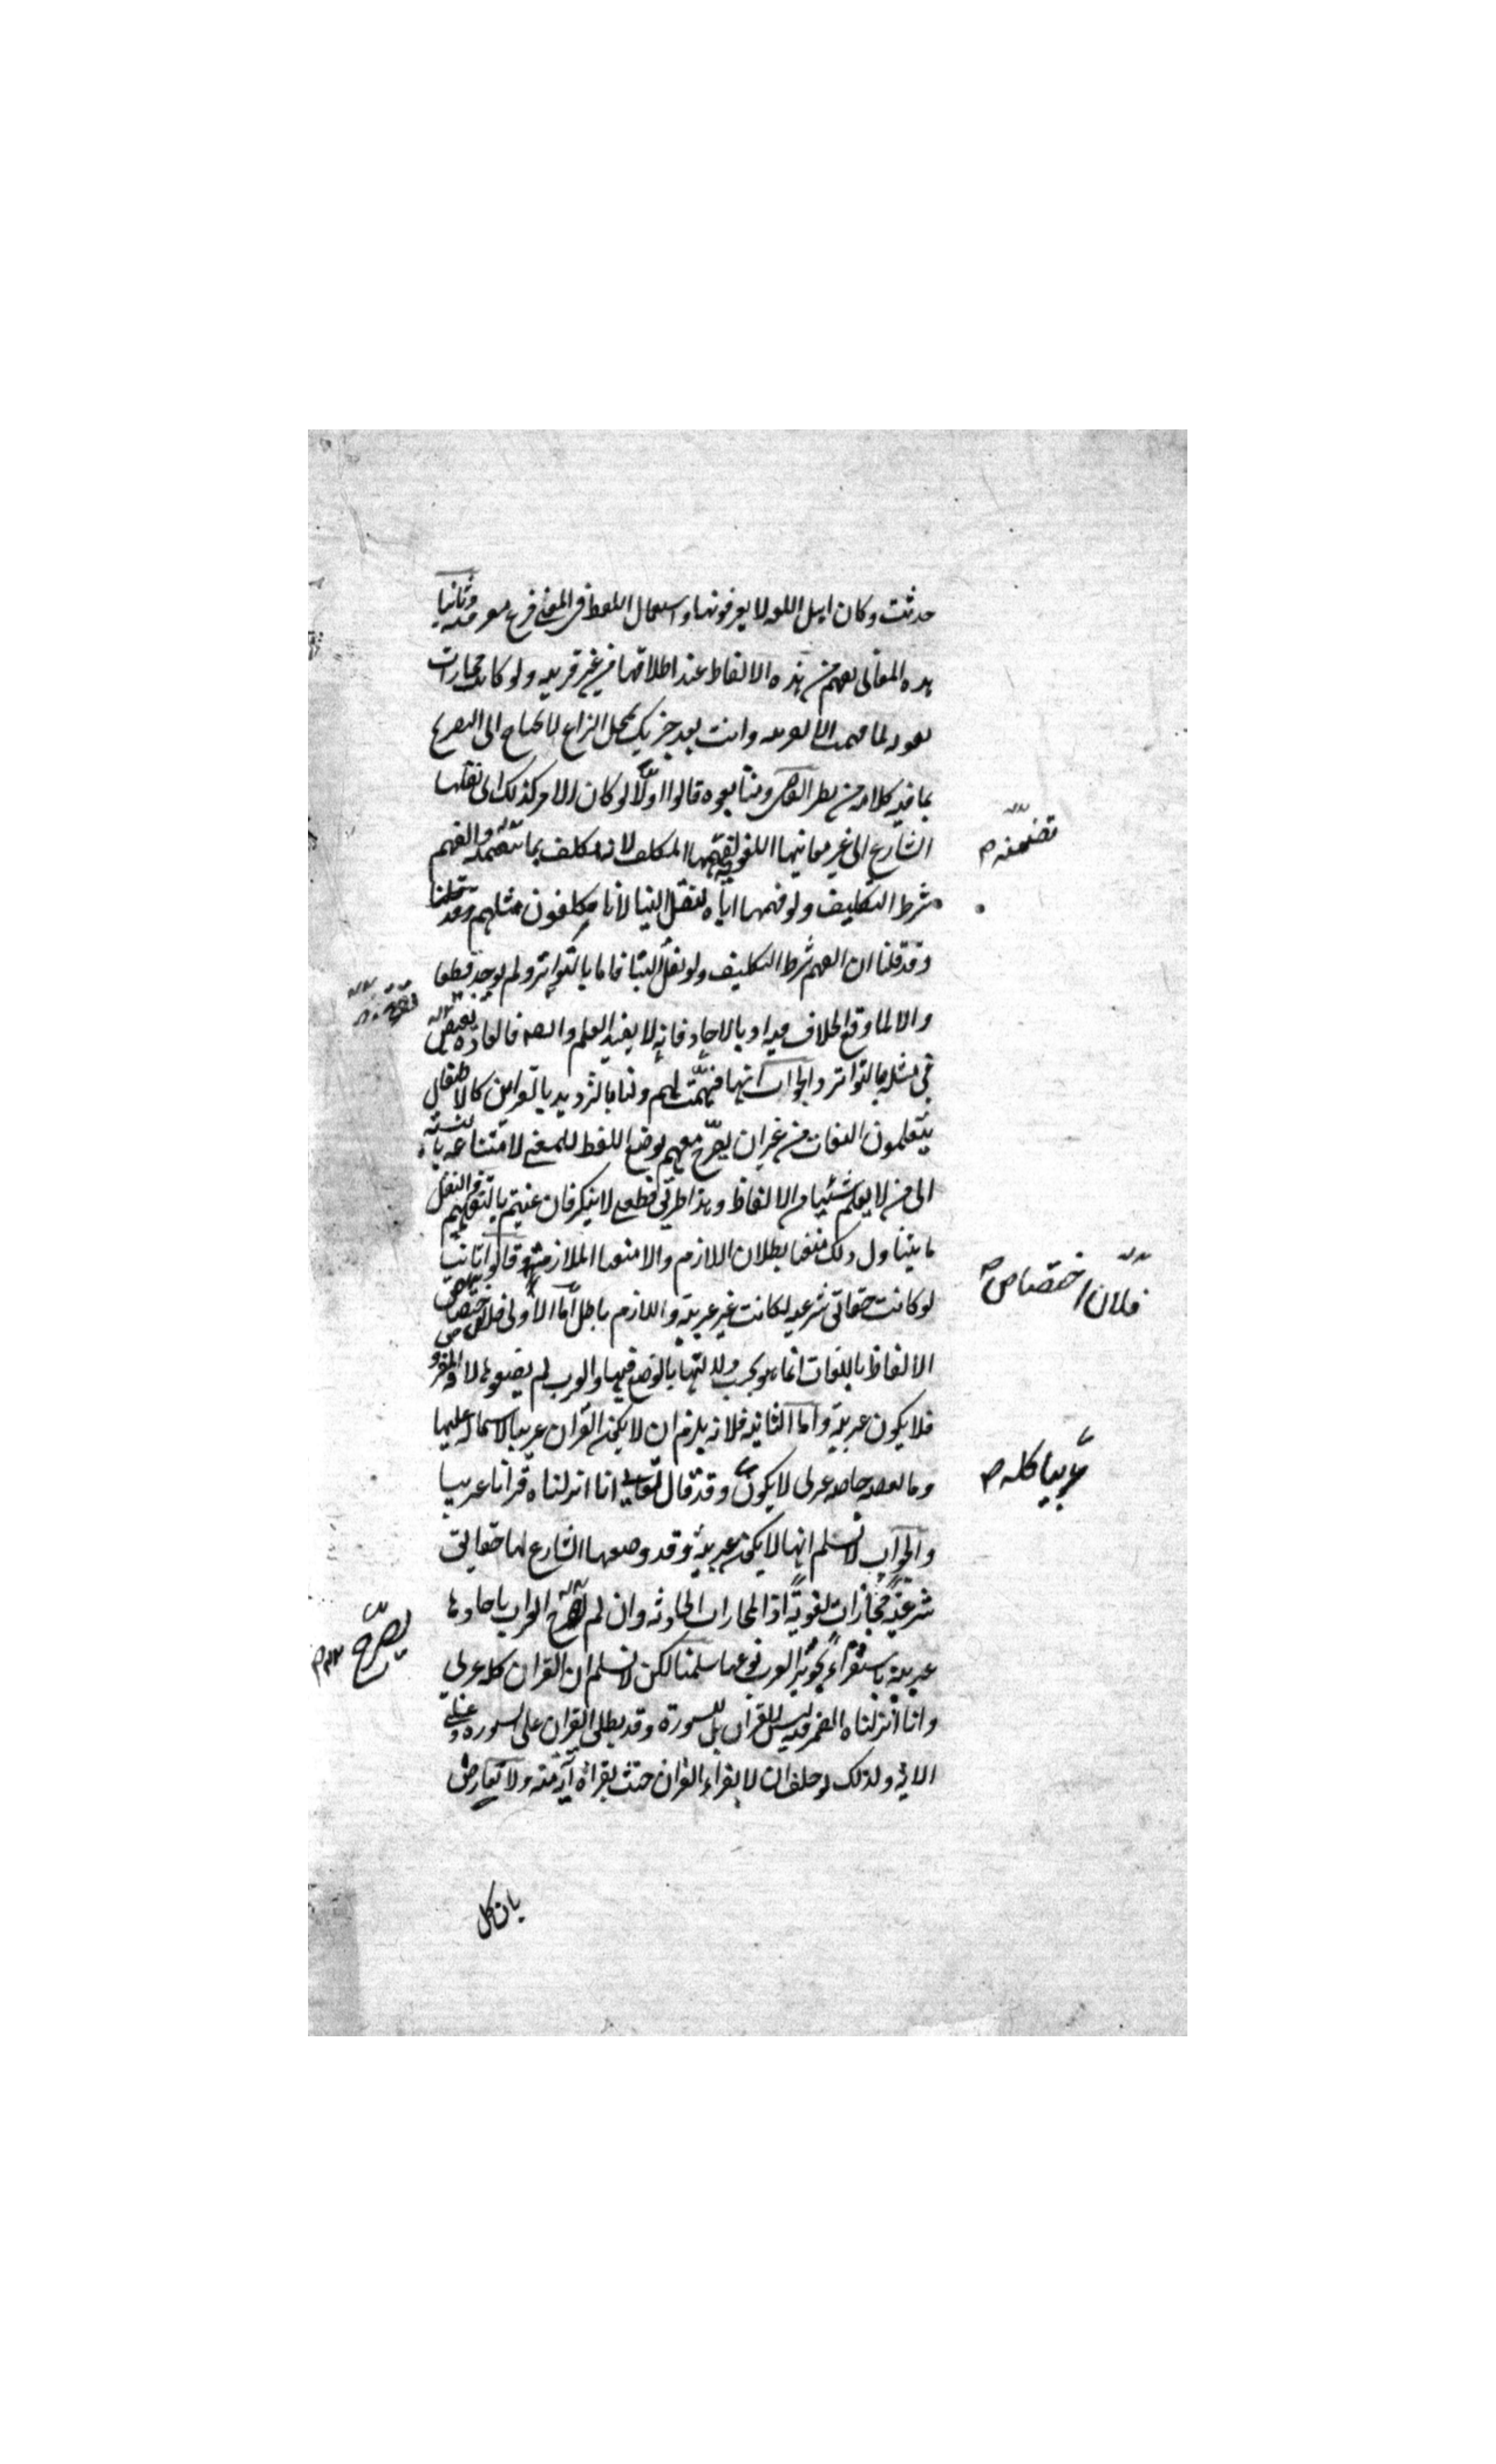 حدثت وكان اهل اللغه لا يعرفونها واستعمال اللفظ في المعنى فرع معرفته وثانيا
هذه المعانى تفهم من هذه الالفاظ عند اطلاقها من غير قرينه ولو كانت مجازات
لغويه لما فهمت الا بقرينه وانت بعد خبرتك بمحل النزاع لا تحتاج الى التصريح
بما فيه كلامه من نظر القاضى ومتابعوه قالوا اولا لو كان الامر كذلك اى نقلها
الشارع الى غير معانيها اللغوية لفهمها المكلف لانه مكلف بما تتضمنه والفهم
تضمنه م
شرط التكليف ولو فهمها اياه لنقل الينا لانا مكلفون مثلهم وقد قلنا
وقد قلنا ان الفهم شرط التكليف ولو نقل الينا فاما بالتواتر ولم يوجد قطعا
والا لما وقع الخلاف فيه او بالاحاد فانه لا يفيد العلم وايضا فالعادة تقتضى
فى مثله بالتواتر والجواب انها فهمت لهم ولنا بالترديد بالقراين كالاطفال
يتعلمون اللغات من غير ان يصرح معهم بوضع اللفظ للمعنى لامتناعه بالنسبة
الى من لا يعلم شيئا من الالفاظ وهذا طريق قطعى لا ينكر فان عنيتم بالتفهيم والنقل
ما يتناول ذلك منعنا بطلان اللازم والا منعنا الملازمة وقالوا ثانيا
لو كانت حقائق شرعيه لكانت غير عربية واللازم باطل اما الاولى فلان اختصاص
فلان اختصاص م
الالفاظ باللغات انما هو بحسب دلالتها بالوضع فيها والعرب لم يضعوها لانه المفروض
فلا يكون عربية واما الثانيه فلانه يلزم ان لا يكون القران عربيا لاشتماله عليها
وما بعضه خاصه عربى لا يكون وقد قال تعالى انا انزلناه قرانا عربيا
عربيا كله م
والجواب لا نسلم انها لا يكون عربية وقد وضعها الشارع لها حقائق
شرعية مجازات لغوية اذ المجازات الحادثه وان لم يصرح العرب باحادها
يصرح م
عربية باستقراء تجويز العرب نوعها سلمنا لكن لا نسلم ان القران كله عربى
وانا انزلناه الضمير فيه ليس للقران بل للسورة وقد يطلق القران على السوره وعلى
الايه ولذلك لو حلف ان لا يقراء القران حنث بقراءة آية منه ولا تعارض
بان كل